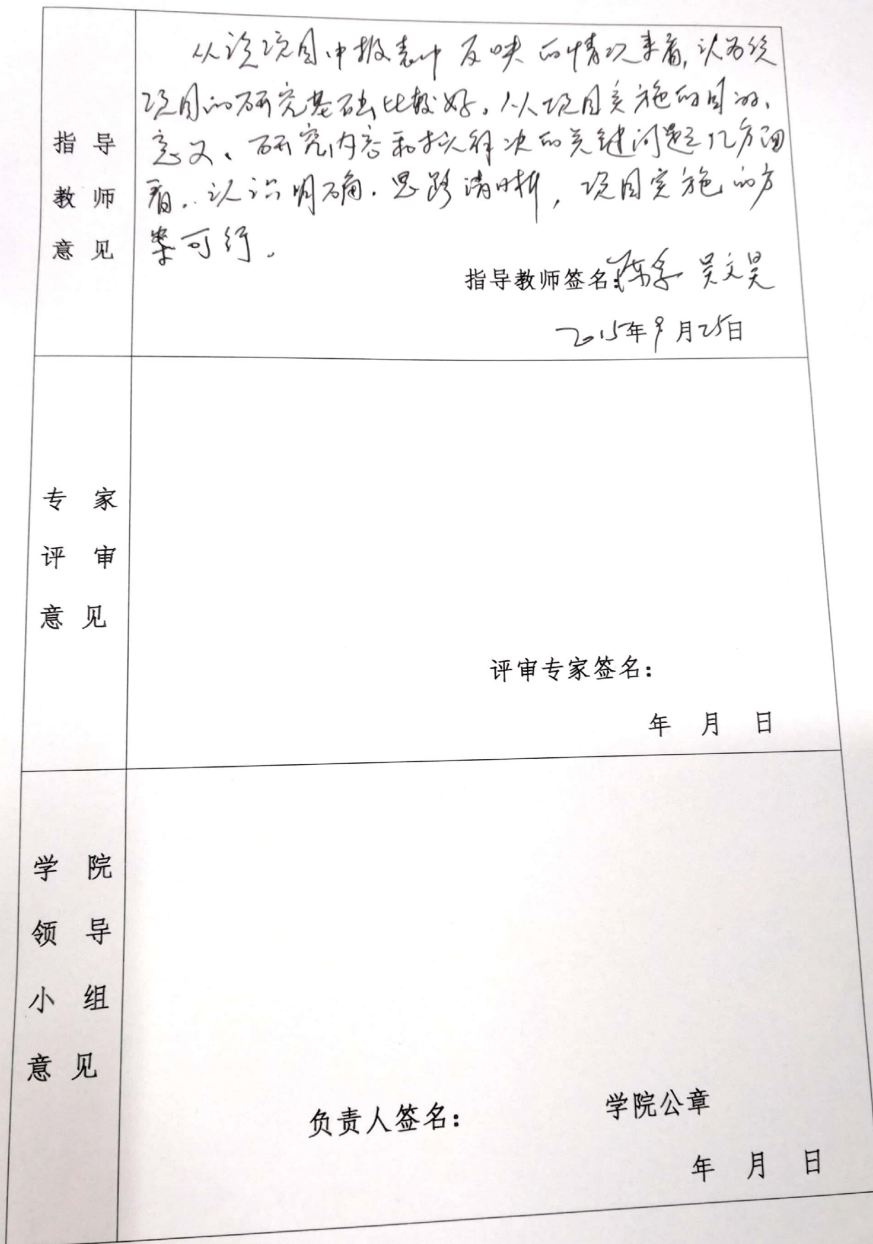 从该项目申报表中反映的情况来看,认为该
项目的研究基础比较好。从项目实施的目的、
意义、研究内容和拟解决的关键问题几方面
看,认识明确,思路清晰,项目实施的方
案可行。
指导
教师
意见
指导教师签名: 吴文昊
2015年9月25日
专家
评审
意见
评审专家签名:
年 月 日
学院
领导
小组
意见
负责人签名: 学院公章
年 月 日